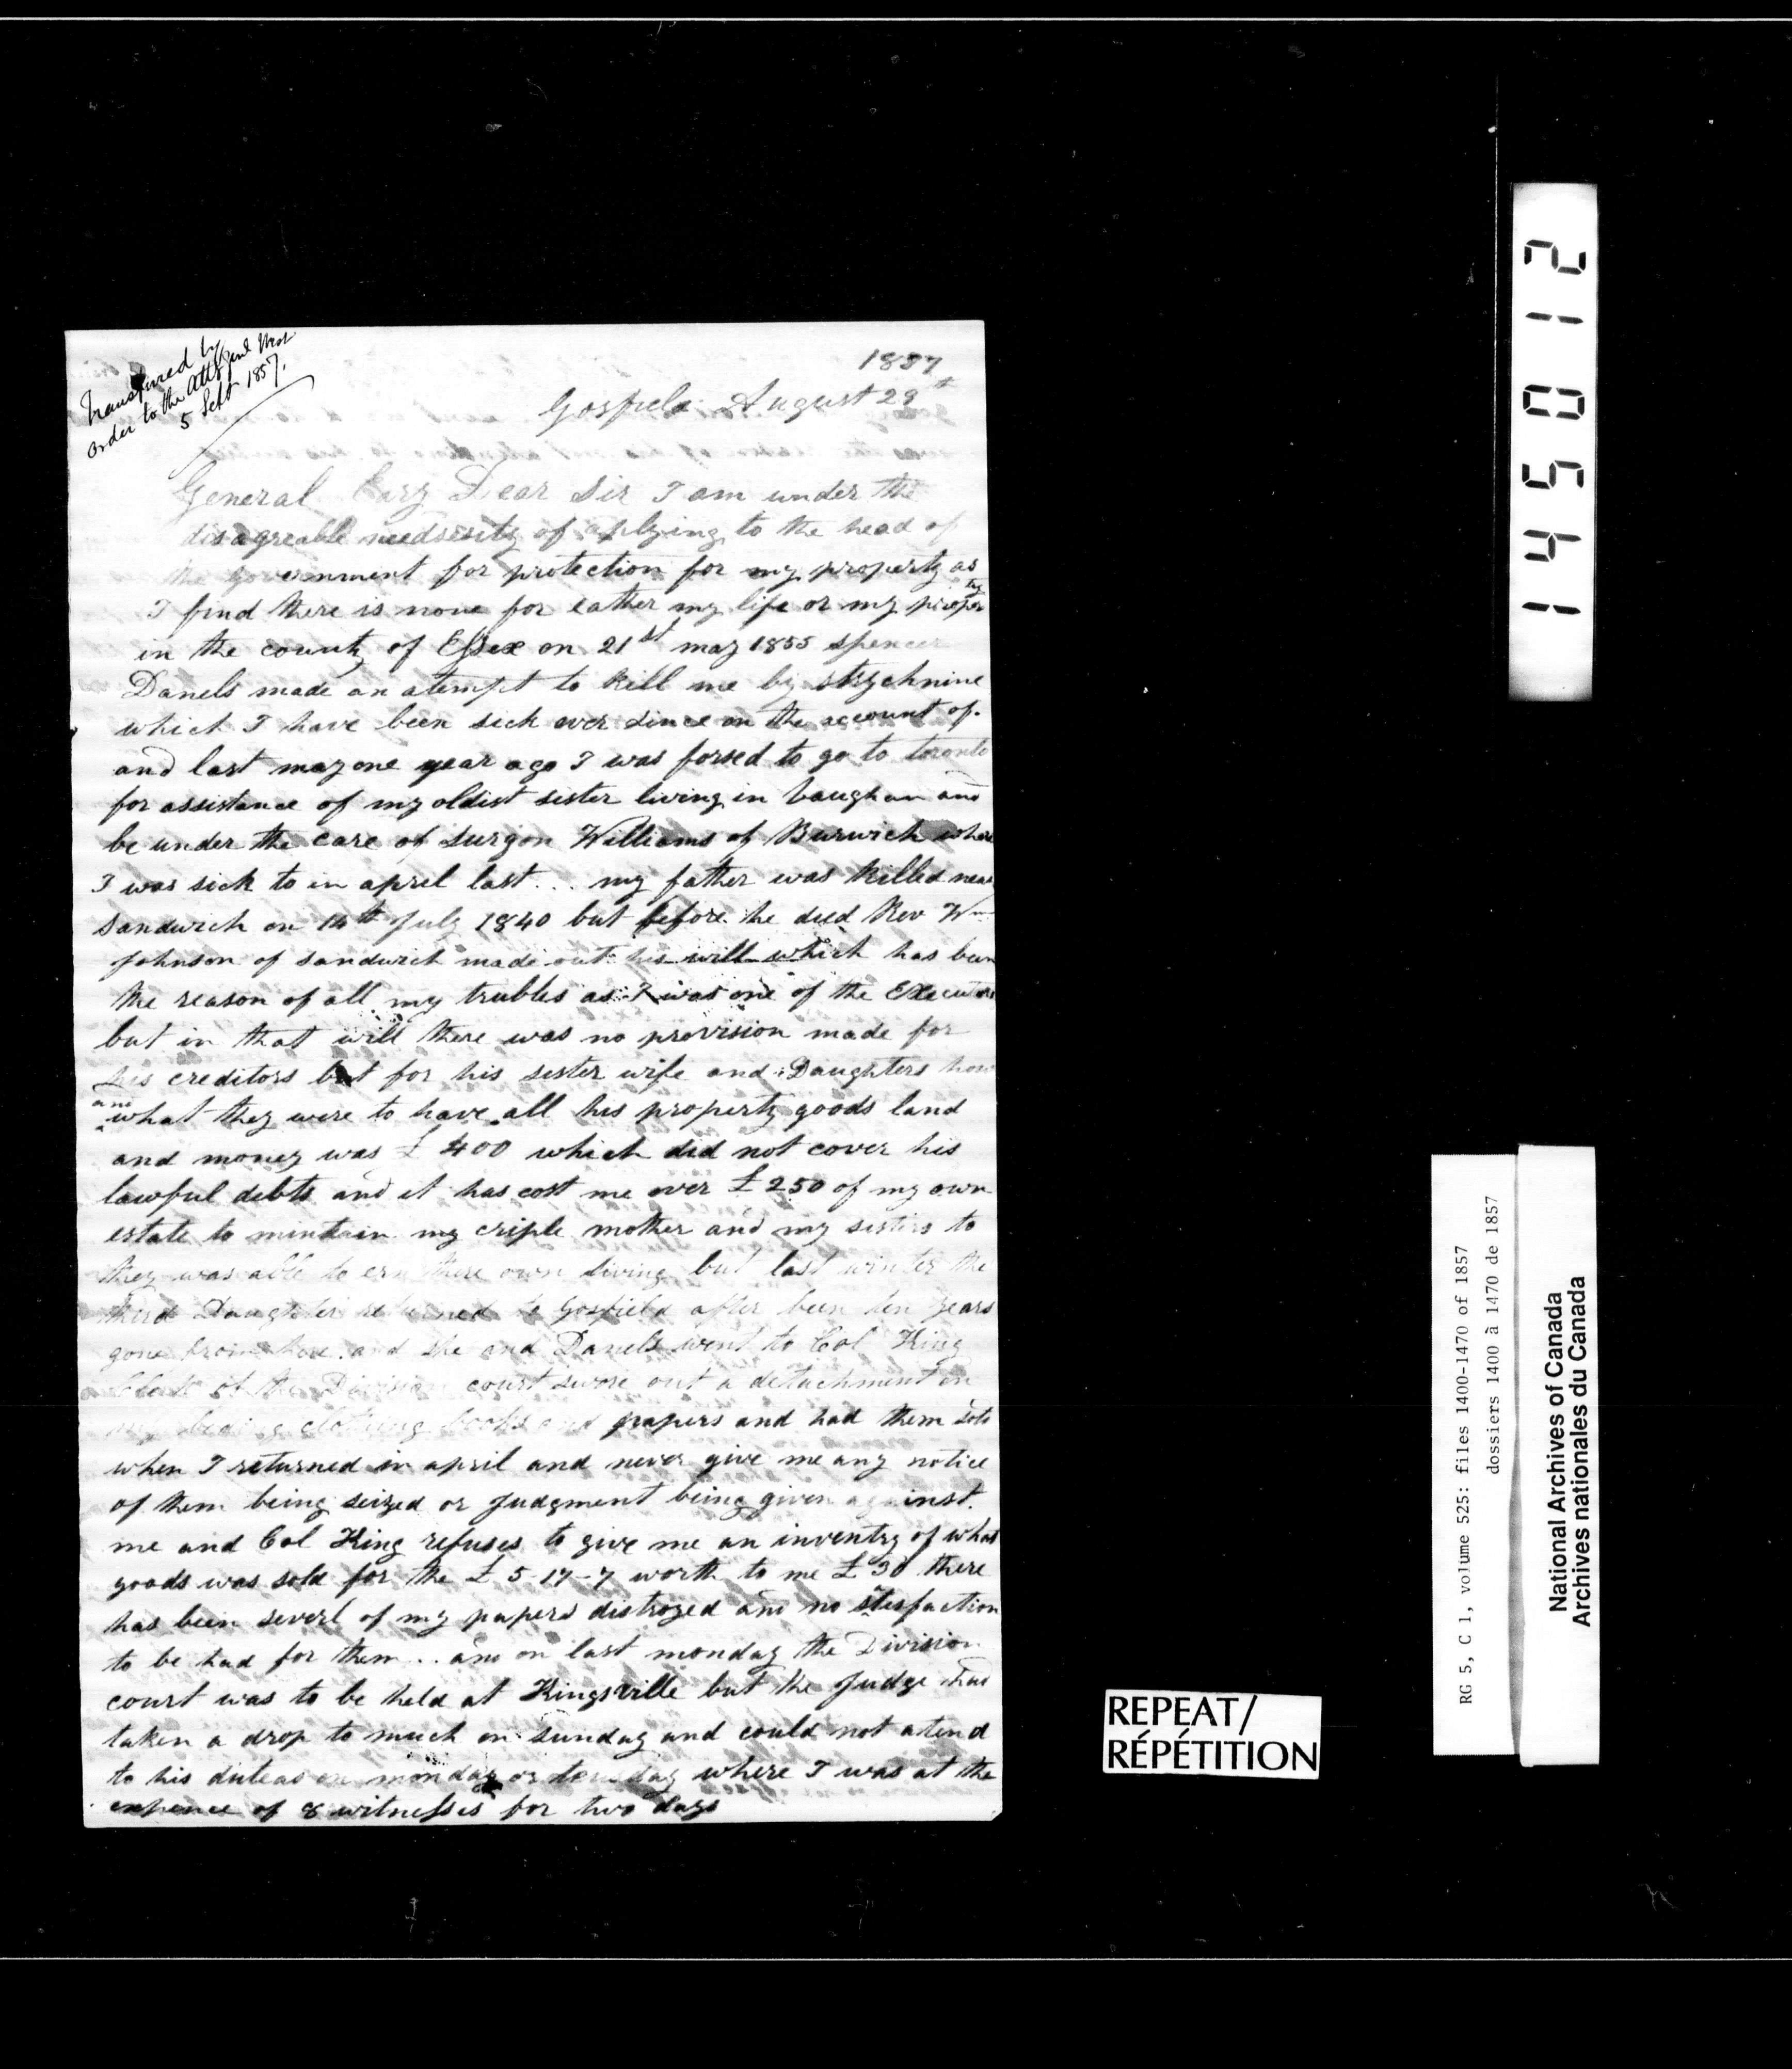 Transfured by
order to the Atty Genl West
5 Sept 1857.
1857
Gosfield August 29th
General Cary Dear Sir I am under the
disagreable needsesity of aplying to the head of
the government for protection for my property as
I find there is none for eather my life or my proper
ty
in the county of Essex on 21st may 1855 spencer
Danels made an atempt to kill me by strychnine
which I have been sick ever since on the account of.
and last may one year ago I was forsed to go to toronto
for assistance of my oldist sister living in Vaughan and
be under the care of surgon Williams of Burwick where
I was sick to in april last... my father was killed near
Sandwich on 14th July 1840 but before he died Rev Wm
Johnson of sandwich made out his will which has been
the reason of all my trubles as I was one of the Executors
but in that will there was no provision made for
his creditors but for his sister wife and Daughters how
and
what they were to have all his property goods land
and money was £400 which did not cover his
lawful debts and it has cost me over £250 of my own
estate to mintain my criple mother and my sisters to
they was able to ern there own living but last winter the
third Daughter returned to Gosfield after been ten years
gone from here and she and Danels went to Col King
Clerk of the Division court swore out a detachment on
my beding clothing books and papers and had them sold
when I returned in april and never give me any notice
of them being seized or Judgment being given against
me and Col King refuses to give me an inventry of what
goods was sold for the £5-17-7 worth to me £30 there
has been severl of my papers distroyed and no stesfaction
to be had for them.. and on last monday the Division
court was to be held at Kingsville but the Judge had
taken a drop to much on sunday and could not atend
to his duteas on monday or tuesday where I was at the
expence of 8 witnesses for two days
145012
REPEAT/
RÉPÉTITION
RG 5, C 1, volume 525: files 1400-1470 of 1857
dossiers 1400 à 1470 de 1857
National Archives of Canada
Archives nationales du Canada